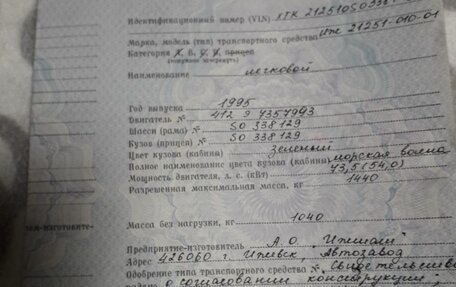 Идентификационный номер (VIN) XTK 212510S0338
Марка, модель (тип) транспортного средства Иж 21251-010-01
Категория A, B, C, D, прицеп
(ненужное зачеркнуть)
Наименование легковой
Год выпуска 1995
Двигатель № 412 Э 4357993
Шасси (рама) № S0 338129
Кузов (прицеп) № S0 338129
Цвет кузова (кабины) зеленый
Полное наименование цвета кузова (кабины) морская волна
Мощность двигателя, л. с. (кВт) 73,5 (54,0)
Разрешенная максимальная масса, кг 1440
Масса без нагрузки, кг 1040
Предприятие-изготовитель А.О. "Ижмаш"
Адрес 426060 г. Ижевск, Автозавод
Одобрение типа транспортного средства № Свидетельство
о согласовании конструкции